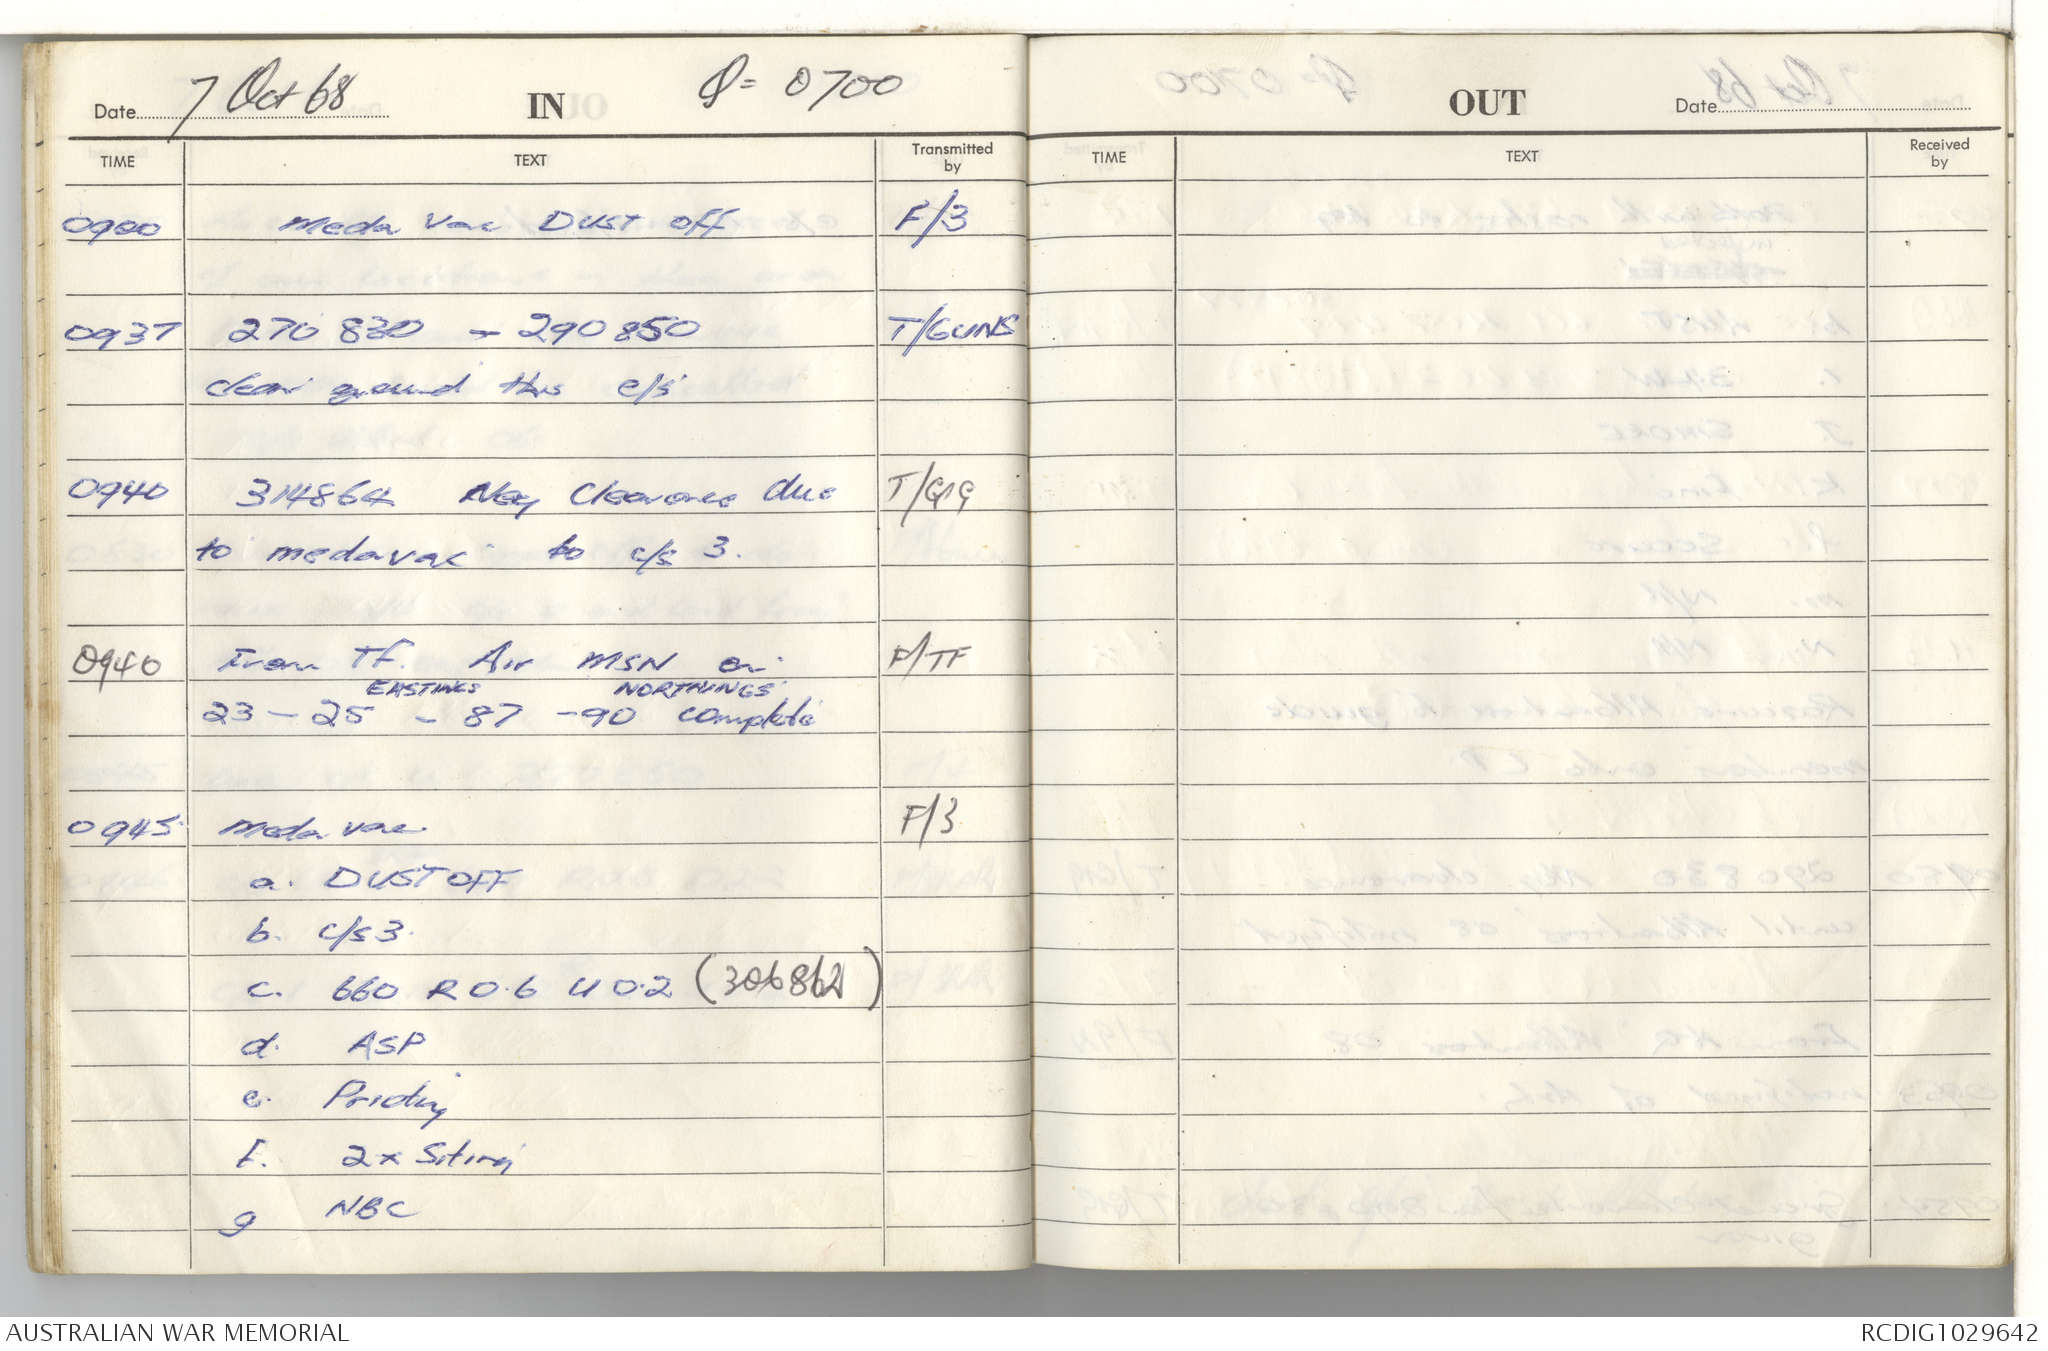 Date 7 Oct 68 IN = 0700
TIME TEXT Transmitted by
0900 Meda vac DUST off F/3
0937 270 830 - 290 850 T/GUNS
clear ground this c/s
0940 314864 Neg Clearance due
to medavac to c/s 3.
0940 From TF. Air MSN on F/TF
EASTINGS NORTHINGS
23 - 25 - 87 - 90 complete
0945 Meda vac F/3
a. DUSTOFF
b. c/s 3.
c. 660 R 0.6 U 0.2 (306862)
d. ASP
e.
f. 2 x
g NBC
OUT Date
TIME TEXT Received by
AUSTRALIAN WAR MEMORIAL RCDIG1029642